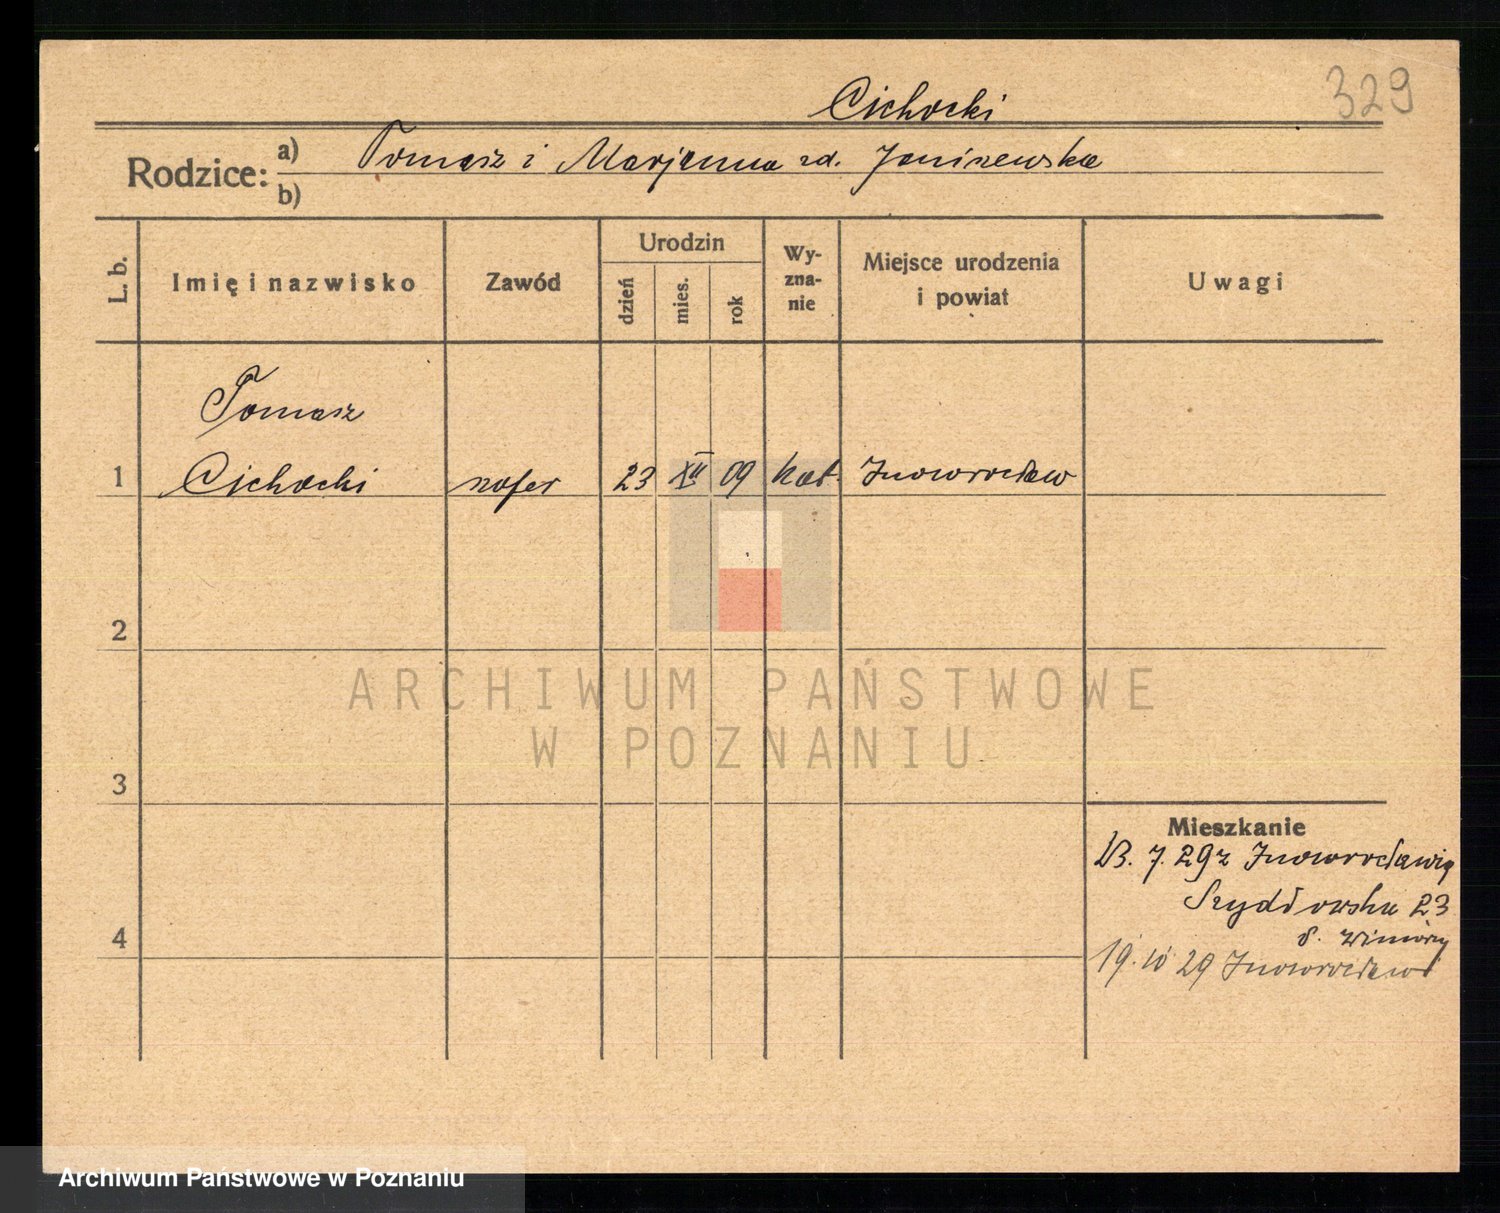 329
Cichocki
Rodzice: a) Tomasz i Marjanna zd. Janiszewska
b)
L. b. Imię i nazwisko Zawód Urodzin dzień mies. rok Wy-zna-nie Miejsce urodzenia i powiat Uwagi
Tomasz
1 Cichocki szofer 23 XII 09 kat. Inowrocław
2
ARCHIWUM PAŃSTWOWE
W POZNANIU
3
Mieszkanie
13. 7. 29 z Inowrocławia
Szydłowska 23
4
19. 10 29 Inowrocław
Archiwum Państwowe w Poznaniu